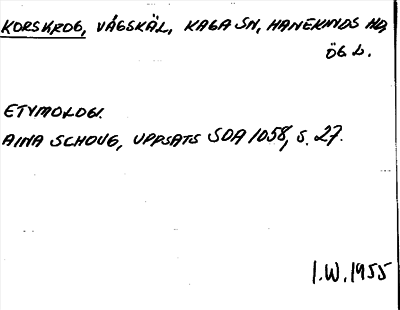 KORSKROG, VÄGSKÄL, KAGA SN, HANEKINDS HD,
ÖG. L.
ETYMOLOGI.
AINA SCHOUG, UPPSATS SOA 1058, S. 27.
I.W. 1955